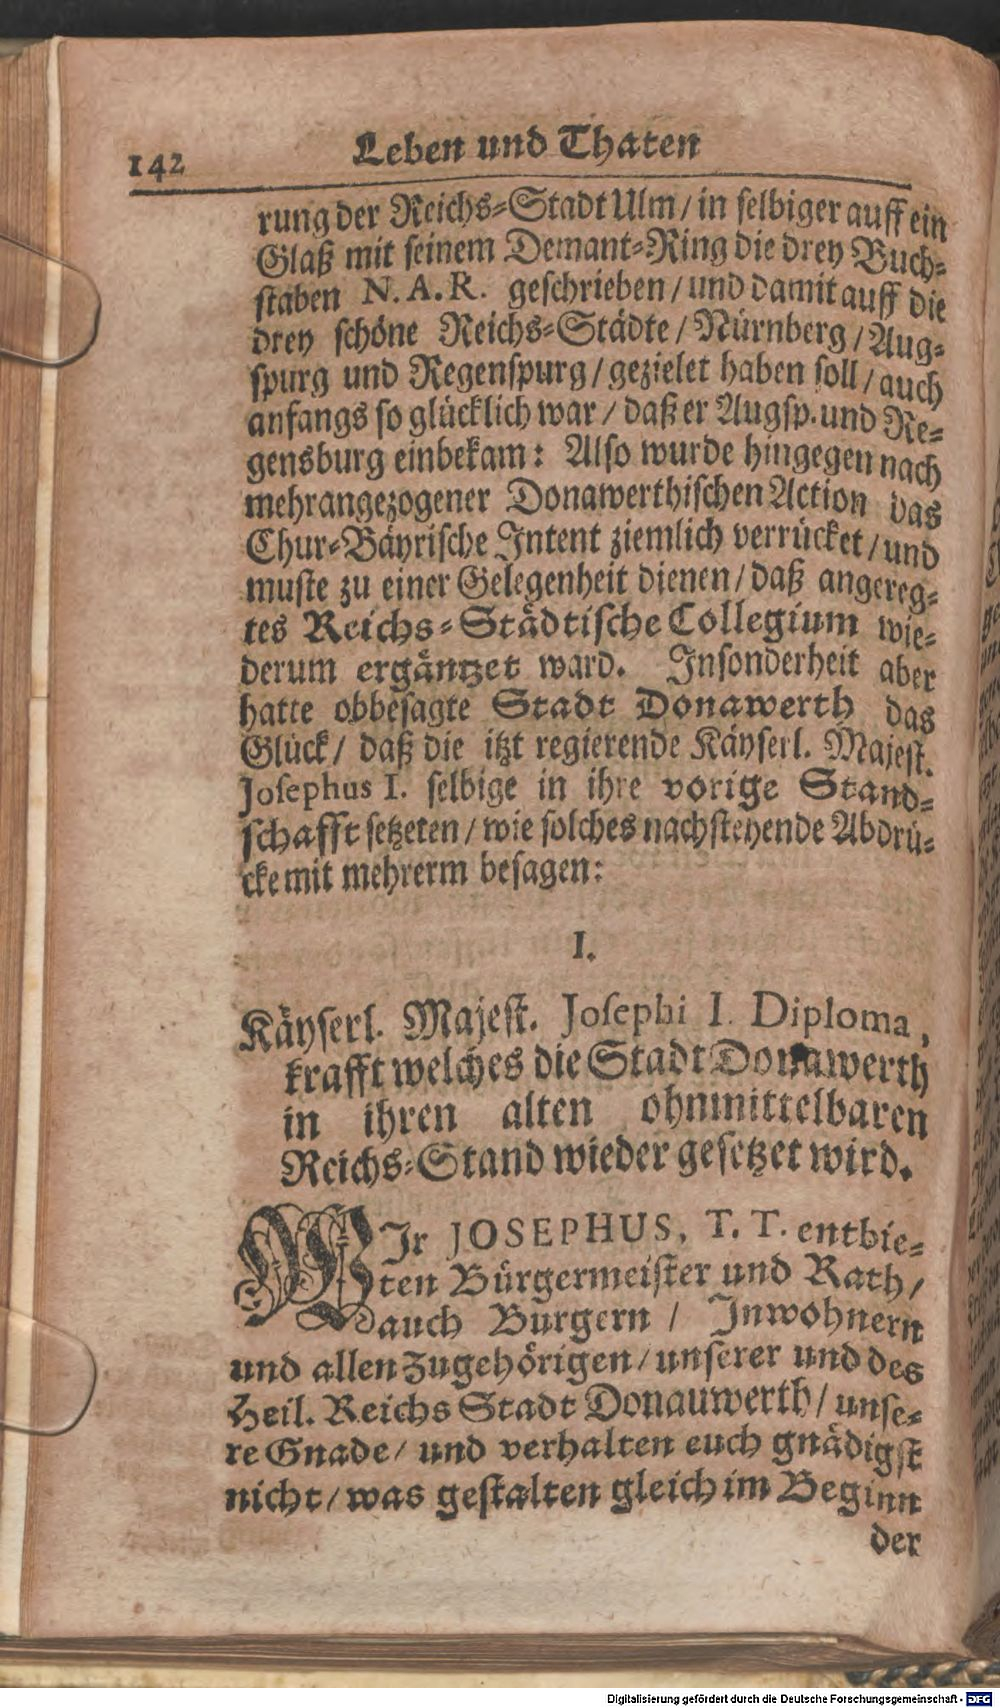 142 Leben und Thaten
rung der Reichs-Stadt Ulm / in selbiger auff ein
Glaß mit seinem Demant-Ring die drey Buch-
staben N. A. R. geschrieben / und damit auff die
drey schöne Reichs-Städte / Nürnberg / Aug-
spurg und Regenspurg / gezielet haben soll / auch
anfangs so glücklich war / daß er Augsp. und Re-
gensburg einbekam: Also wurde hingegen nach
mehrangezogener Donawerthischen Action das
Chur-Bäyrische Intent ziemlich verrücket / und
muste zu einer Gelegenheit dienen / daß angereg-
tes Reichs-Städtische Collegium wie-
derum ergäntzet ward. Insonderheit aber
hatte obbesagte Stadt Donawerth das
Glück / daß die itzt regierende Käyserl. Majest.
Josephus I. selbige in ihre vorige Stand-
schafft setzeten / wie solches nachstehende Abdrü-
cke mit mehrerm besagen:
I.
Käyserl. Majest. Josephi I. Diploma,
krafft welches die Stadt Donawerth
in ihren alten ohnmittelbaren
Reichs-Stand wieder gesetzet wird.
WIr JOSEPHUS, T. T. entbie-
ten Bürgermeister und Rath /
auch Burgern / Inwohnern
und allen Zugehörigen / unserer und des
Heil. Reichs Stadt Donauwerth / unse-
re Gnade / und verhalten euch gnädigst
nicht / was gestalten gleich im Beginn
der
Digitalisierung gefördert durch die Deutsche Forschungsgemeinschaft - DFG